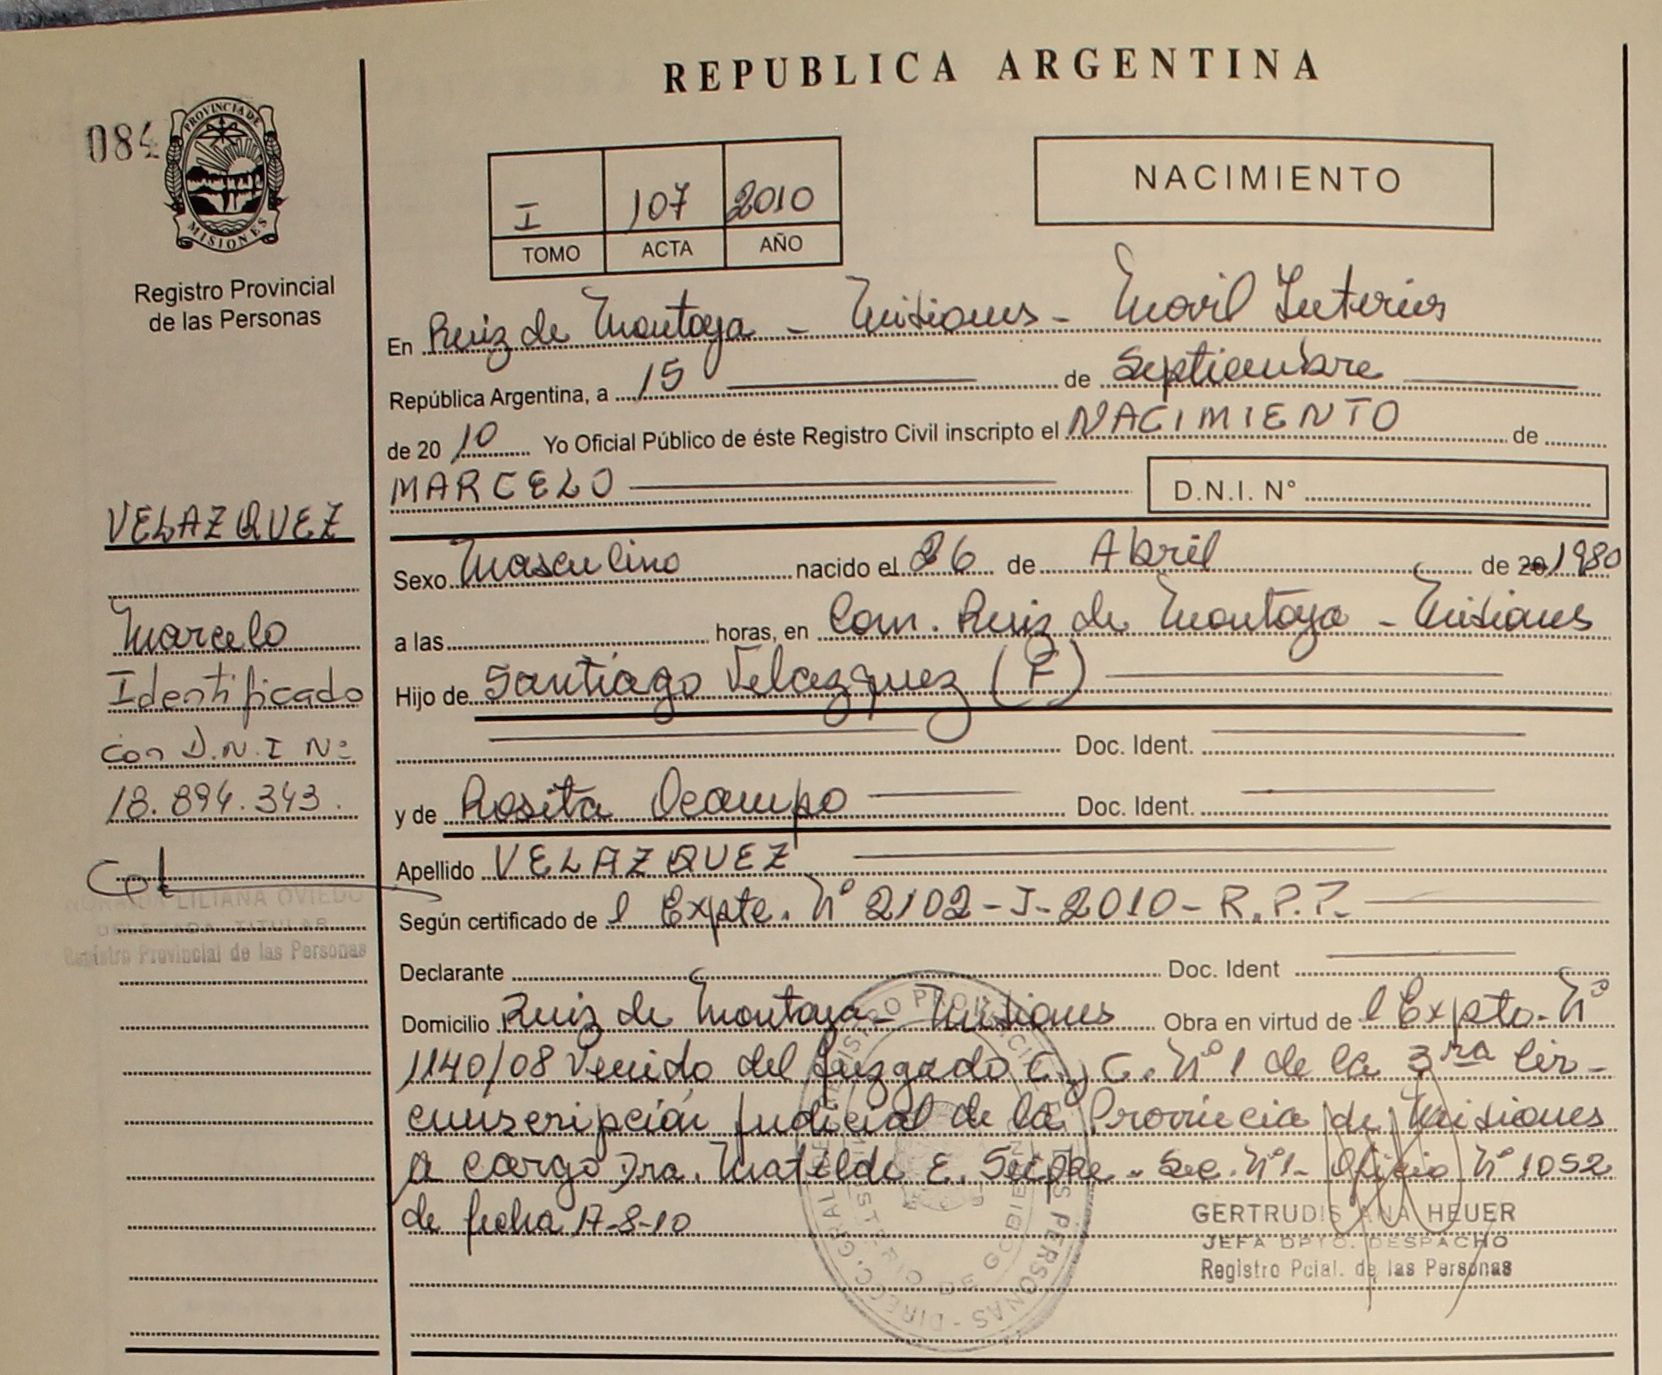 REPUBLICA ARGENTINA
084
PROVINCIA DE
MISIONES
Registro Provincial
de las Personas
I 107 2010
TOMO ACTA AÑO
NACIMIENTO
En Ruiz de Montoya - Misiones - Movil Interior
República Argentina, a 15 de Septiembre
de 20 10 Yo Oficial Público de éste Registro Civil inscripto el NACIMIENTO de
MARCELO
D.N.I. N°
VELAZQUEZ
Marcelo
Identificado
con D.N.I N°
18.894.343.
LILIANA OVIEDO
Registro Provincial de las Personas
Sexo Masculino nacido el 26 de Abril de 20 1980
a las horas, en Com. Ruiz de Montoya - Misiones
Hijo de Santiago Velazquez (F)
Doc. Ident.
y de Rosita Ocampo Doc. Ident.
Apellido VELAZQUEZ
Según certificado de l Expte. N° 2102-J-2010-R.P.P.
Declarante Doc. Ident
Domicilio Ruiz de Montoya - Misiones Obra en virtud de l Expto. N°
1140/08 Venido del Juzgado C. y C. N° 1 de la 3ra Cir-
cunscripción Judicial de la Provincia de Misiones
A cargo Dra. Matilde E. - Sec. N°1- Oficio N° 1052
de fecha 17-8-10
GERTRUDIS ANA HEUER
JEFA DPTO. DESPACHO
Registro Pcial. de las Personas